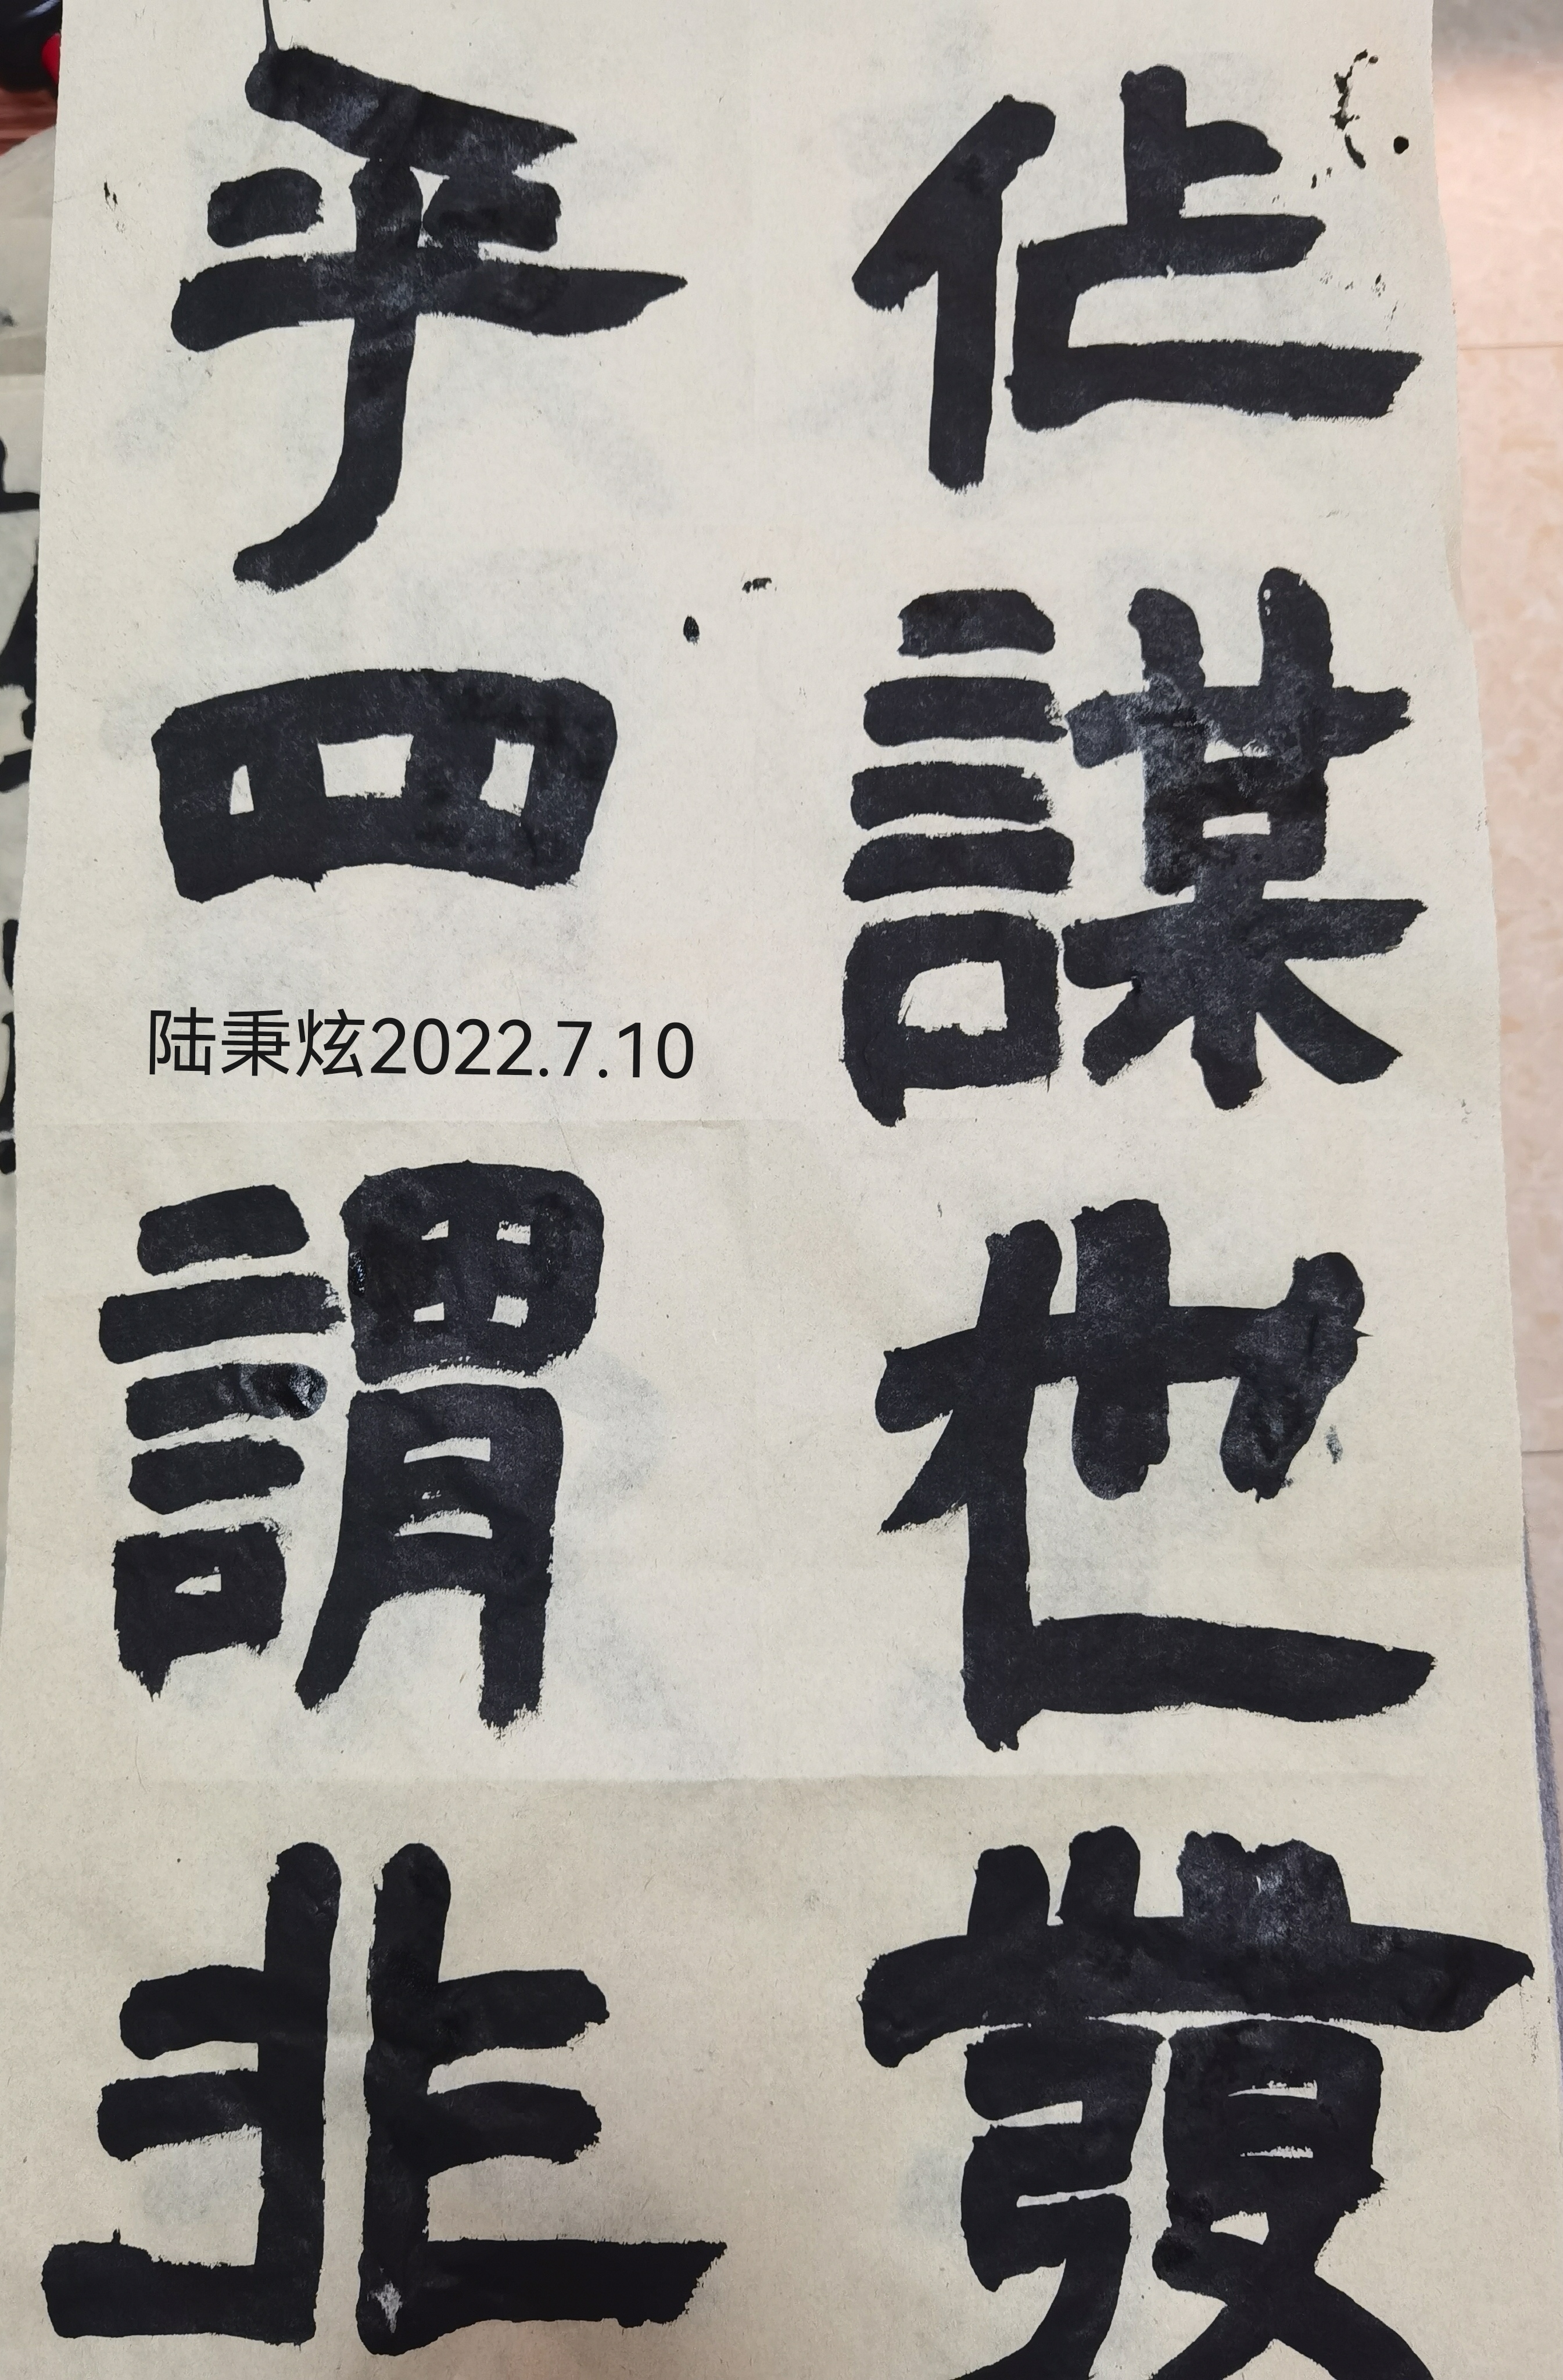 作謀也發
乎四謂非
陆秉炫2022.7.10